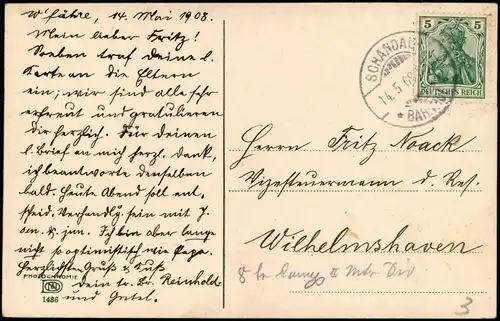 W'fähre, 14. Mai 1908.
Mein lieber Fritz!
Soeben traf Deine l.
Karte an die Eltern
ein, wir sind alle sehr
erfreut und gratulieren
dir herzlich. Für Deinen
l. Brief an mich herz. Dank,
ich beantworte denselben
bald. Heute Abend soll ent-
scheid. Verhandlg. sein mit J.
am. & jun. Ich bin aber lange
nicht so optimistisch wie Papa.
Herzlichsten Gruß & Kuß
dein tr. Br. Reinhold
und Gretel.
PHOTOCHROMIE
1486
SCHANDAU
14.5.08
* BAH
5 5
DEUTSCHES REICH
Herrn Fritz Noack
Vizesteuermann d. Res.
Wilhelmshaven
3